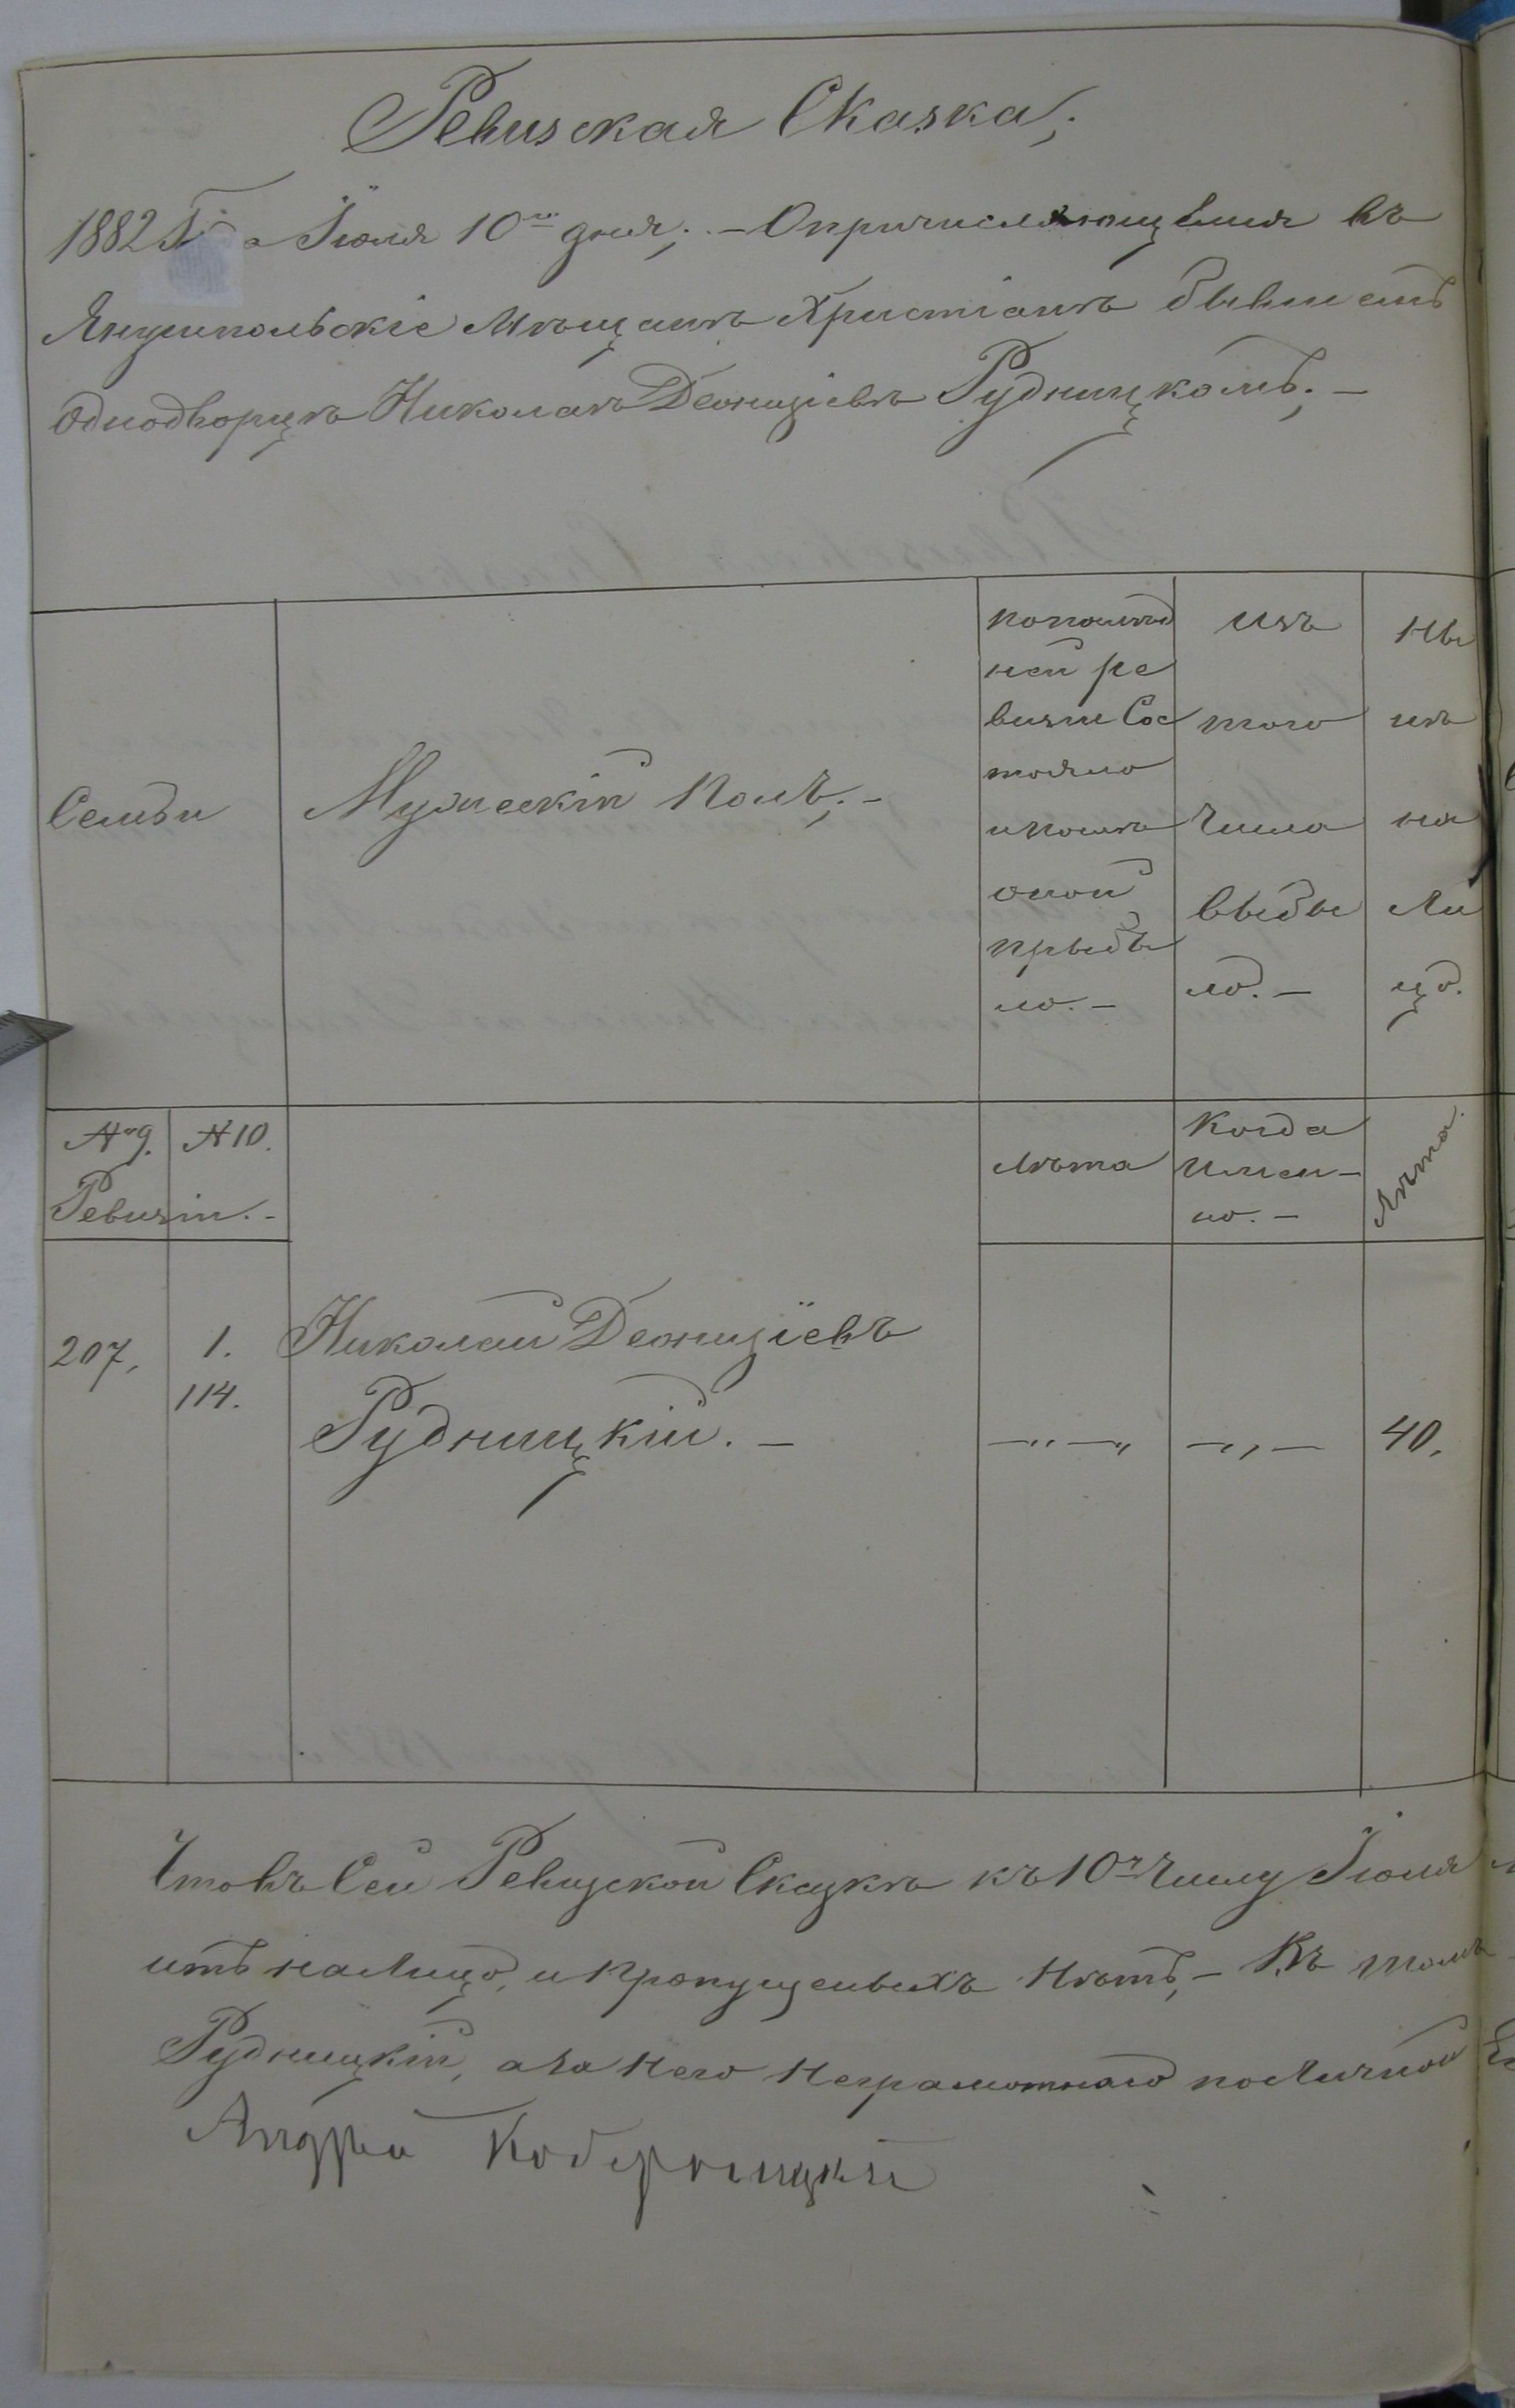 Ревизская Сказка;
1882 Г. Іюля 10го дня; - О причисляющемся въ
Янушпольскіе Мѣщанѣ Христіанѣ бывшемъ
однодворцѣ Николаѣ Деонизіевѣ Рудницкомъ; -
Семьи
Мужескій полъ; -
по послѣд
ней ре
визіи Сос
тояло
и послѣ
оной
прыбы
ло. -
Изъ
того
числа
выбы
ло. -
Ны
нѣ
на
Ли
цо.
№ 9. № 10.
Ревизіи. -
Лѣта
Когда
Имен-
но. -
Лѣта.
207. 1. Николай Деонизіевъ
114.
Рудницкій. - 40.
Что въ Сей Ревизской Сказкѣ къ 10му числу Іюля
итъ на Лицо, и пропущеныхъ Нѣтъ, - Въ томъ
Рудницкій, а за Него Неграмотнаго по Личной
Андрей